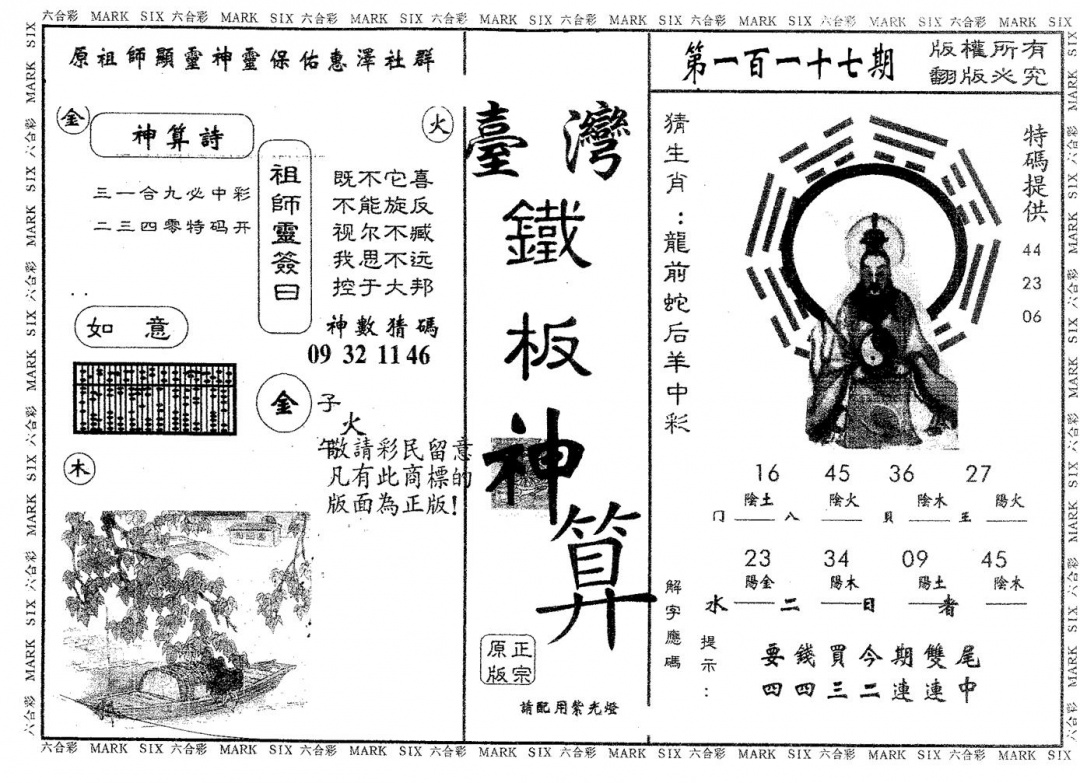 六合彩 MARK SIX 六合彩 MARK SIX 六合彩 MARK SIX 六合彩 MARK SIX 六合彩 MARK SIX 六合彩 MARK SIX 六合彩 MARK SIX 六合彩 MARK SIX
原祖師顯靈神靈保佑惠澤社群
金
神算詩
火
三一合九必中彩
二三四零特码开
祖師靈簽曰
既不它喜
不能旋反
视尔不臧
我思不远
控于大邦
神數猜碼
09 32 11 46
如意
金
子
火
午
木
敬請彩民留意
凡有此商標的
版面為正版!
臺灣
鐵
板
神
算
正宗
原版
請配用紫光燈
第一百一十七期
版權所有
翻版必究
猜生肖：龍前蛇后羊中彩
特碼提供
44
23
06
16 45 36 27
陰土 陰火 陰木 陽火
门 八 貝 王
23 34 09 45
陽金 陽木 陽土 陰木
水 二 日 者
解字應碼
提示：
要錢買今期雙尾
四四三二連連中
六合彩 MARK SIX 六合彩 MARK SIX 六合彩 MARK SIX 六合彩 MARK SIX 六合彩 MARK SIX 六合彩 MARK SIX 六合彩 MARK SIX 六合彩 MARK SIX